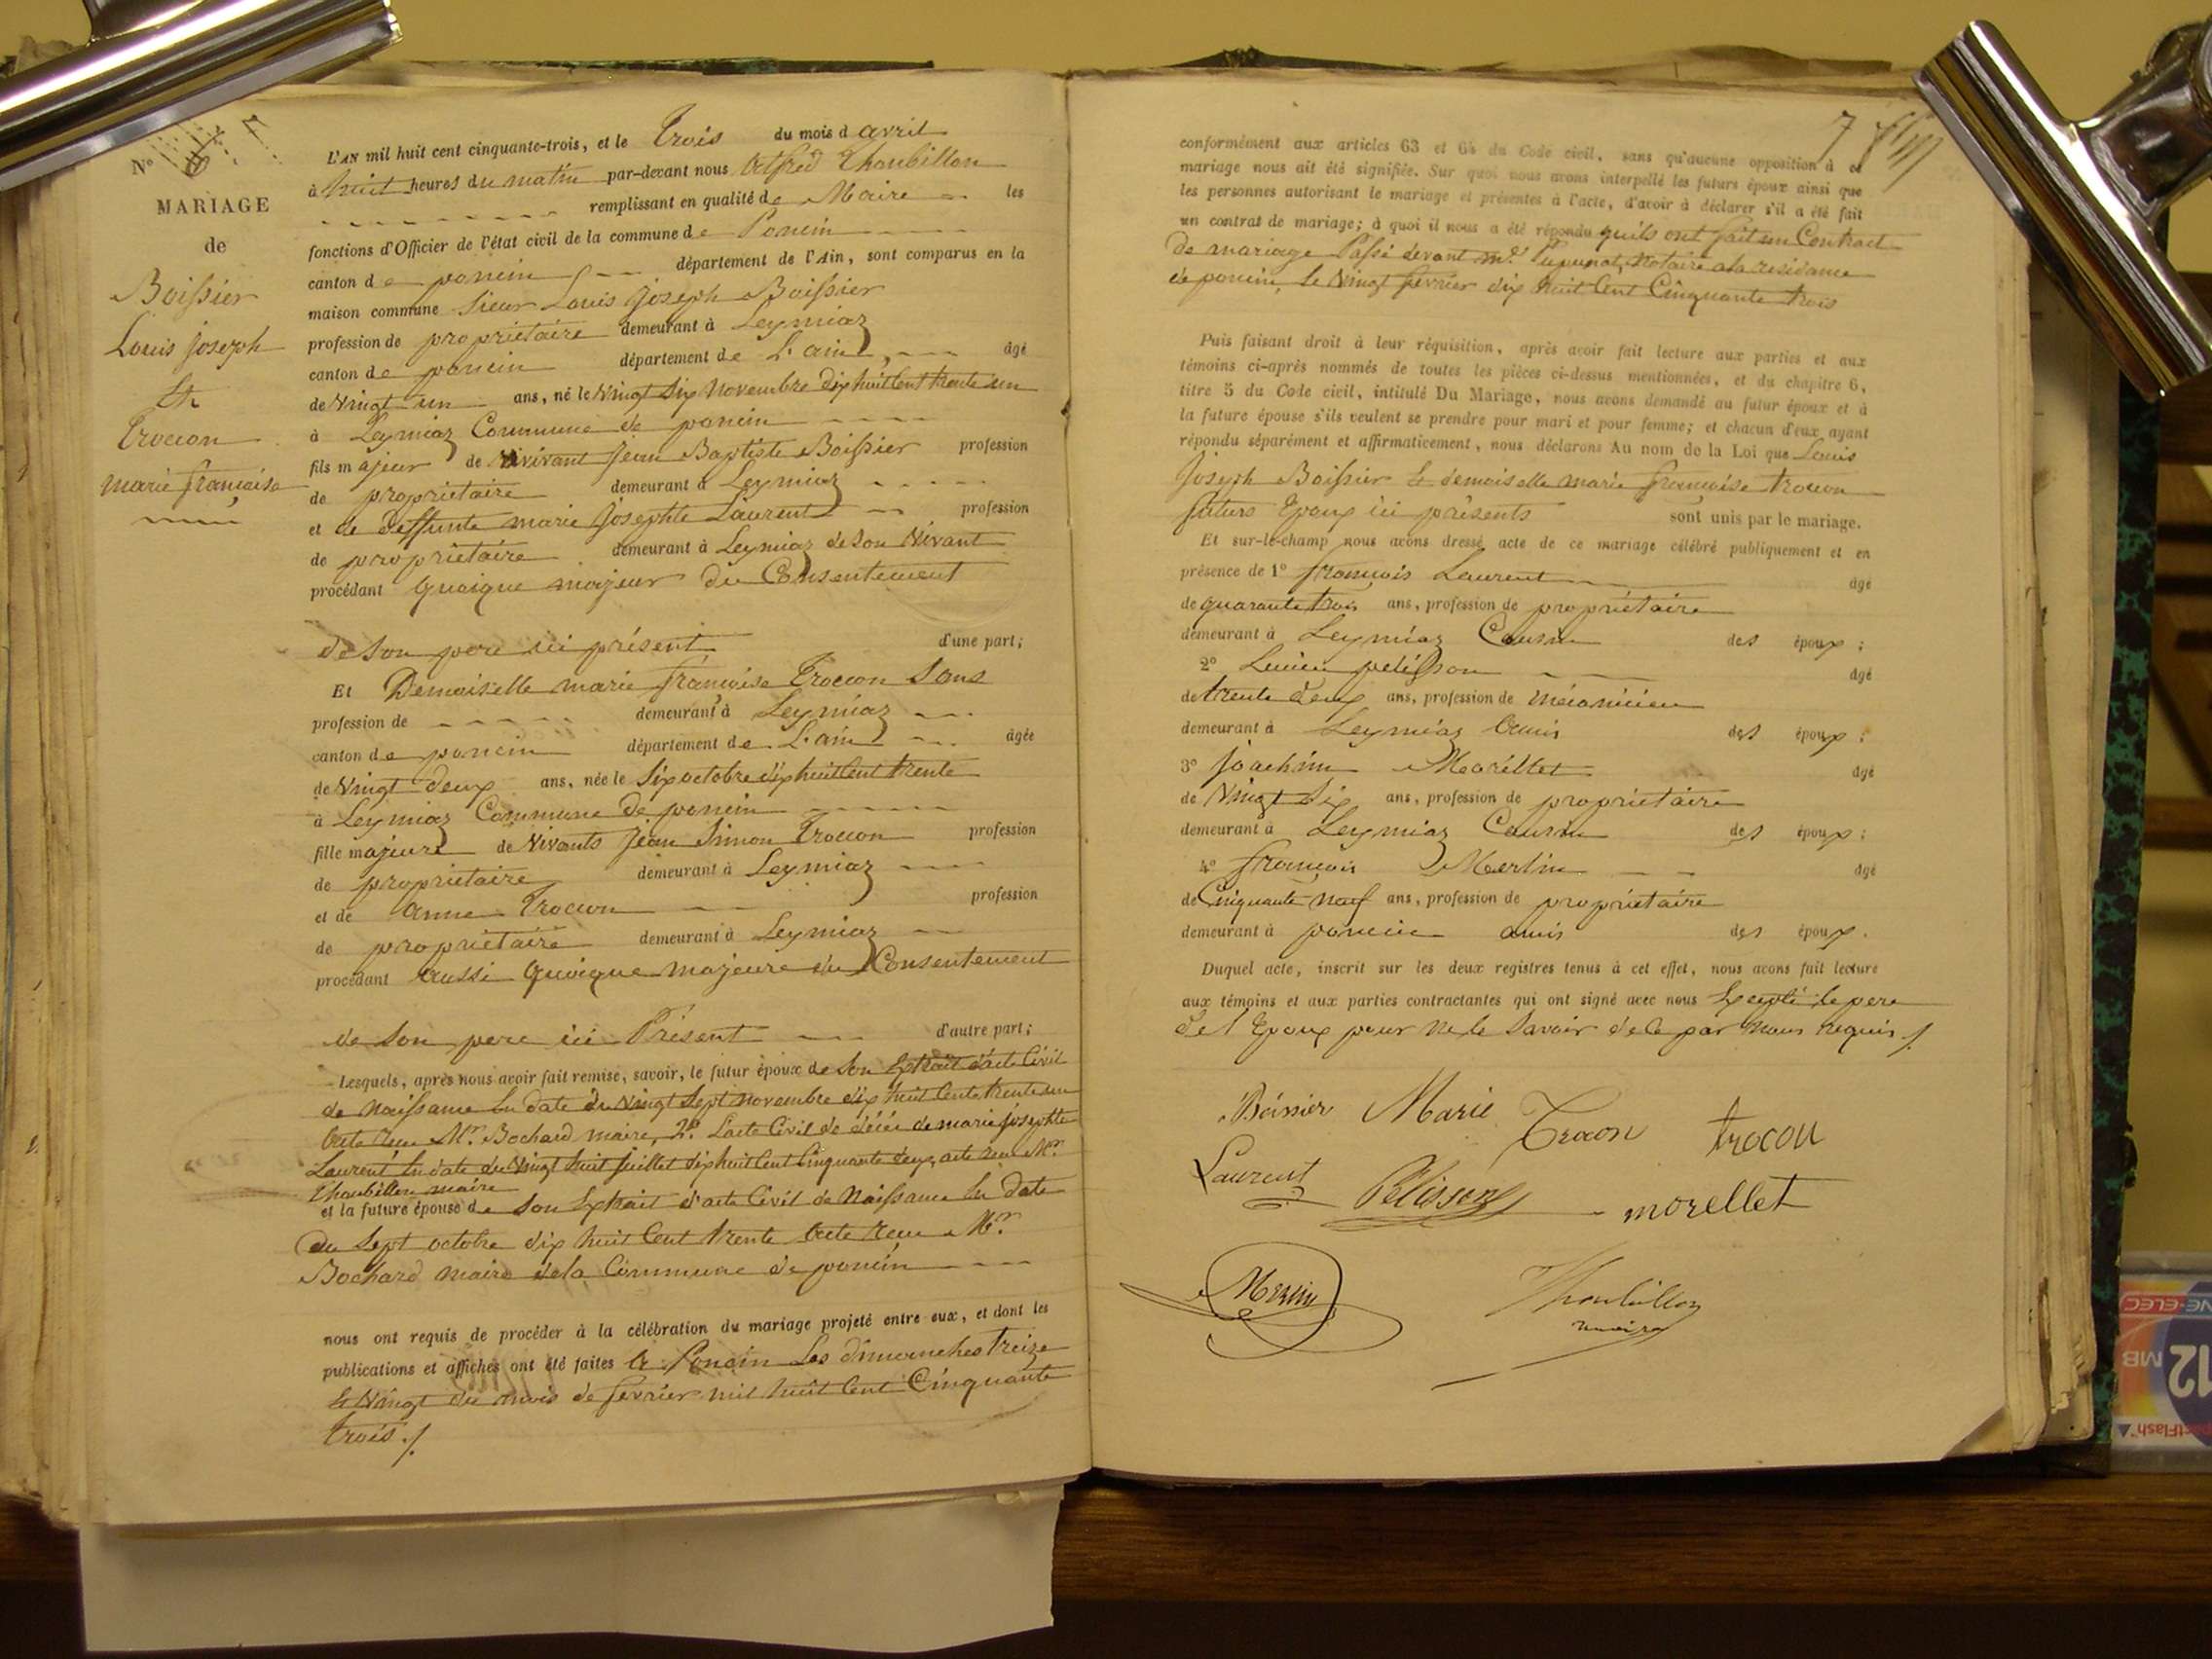 N° 6
MARIAGE
de
Boissier
Louis joseph
Et
Trocon
marie françoise
L'AN mil huit cent cinquante-trois, et le Trois du mois d avril
à huit heures du matin par-devant nous Alfred Thoubillon
remplissant en qualité de Maire les
fonctions d'Officier de l'état civil de la commune de Poncin
canton de poncin département de l'Ain, sont comparus en la
maison commune Sieur Louis joseph Boissier
profession de propriétaire demeurant à Leymiaz
canton de poncin département de L'ain, âgé
de Vingt un ans, né le Vingt Six Novembre dix huit Cent trente un
à Leymiaz Commune de poncin
fils majeur de vivant Jean Baptiste Boissier profession
de propriétaire demeurant à Leymiaz
et de Deffunte marie Josephte Laurent profession
de propriétaire demeurant à Leymiaz de son Vivant
procédant quoique majeur du Consentement
de son pere ici présent d'une part;
Et Demoiselle marie françoise Trocon Sans
profession de demeurant à Leymiaz
canton de poncin département de L'ain âgée
de Vingt deux ans, née le Six octobre dix huit Cent trente
à Leymiaz Commune de poncin
fille majeure de Vivants Jean Simon Trocon profession
de propriétaire demeurant à Leymiaz
et de Anne Trocon profession
de propriétaire demeurant à Leymiaz
procédant aussi quoique majeure du Consentement
de son pere ici Présent d'autre part;
Lesquels, après nous avoir fait remise, savoir, le futur époux de son Extrait d'acte Civil
de Naissance En date du Vingt Sept Novembre dix huit Cent trente un
Acte reçu Mr. Bochard maire, 2° L'acte Civil de décès de marie josephte
Laurent En date du Vingt huit juillet dix huit Cent Cinquante deux, acte reçu Mr.
Thoubillon maire
et la future épouse de son Extrait d'acte Civil de Naissance En date
du Sept octobre dix huit Cent trente Acte reçu Mr.
Bochard maire de la Commune de poncin
nous ont requis de procéder à la célébration du mariage projeté entre eux, et dont les
publications et affiches ont été faites à Poncin Les dimanches treize
Et Vingt du mois de fevrier mil huit Cent Cinquante
trois ./
7
conformément aux articles 63 et 64 du Code civil, sans qu'aucune opposition à ce
mariage nous ait été signifiée. Sur quoi nous avons interpellé les futurs époux ainsi que
les personnes autorisant le mariage et présentes à l'acte, d'avoir à déclarer s'il a été fait
un contrat de mariage; à quoi il nous a été répondu quils ont fait un Contract
de mariage Passé devant me. Notaire a la residance
de poncin, Le Vingt fevrier dix huit Cent Cinquante trois
Puis faisant droit à leur réquisition, après avoir fait lecture aux parties et aux
témoins ci-après nommés de toutes les pièces ci-dessus mentionnées, et du chapitre 6,
titre 5 du Code civil, intitulé Du Mariage, nous avons demandé au futur époux et à
la future épouse s'ils veulent se prendre pour mari et pour femme; et chacun d'eux ayant
répondu séparément et affirmativement, nous déclarons Au nom de la Loi que Louis
Joseph Boissier Et demoiselle marie françoise trocon
futurs Epoux ici présents sont unis par le mariage.
Et sur-le-champ nous avons dressé acte de ce mariage célébré publiquement et en
présence de 1° françois Laurent âgé
de quarante trois ans, profession de propriétaire
demeurant à Leymiaz Cousin des époux;
2° Lucien pelisson âgé
de trente deux ans, profession de mécanicien
demeurant à Leymiaz Amis des époux;
3° joachim Morellet âgé
de Vingt Six ans, profession de propriétaire
demeurant à Leymiaz Cousin des époux;
4° françois Merlin âgé
de Cinquante neuf ans, profession de propriétaire
demeurant à poncin amis des époux.
Duquel acte, inscrit sur les deux registres tenus à cet effet, nous avons fait lecture
aux témoins et aux parties contractantes qui ont signé avec nous Excepté le pere
de l'Epoux pour ne le Savoir de ce par Nous requis ./
Boissier Marie Trocon trocon
Laurent Pelisson morellet
Merlin Thoubillon
maire
12
MB